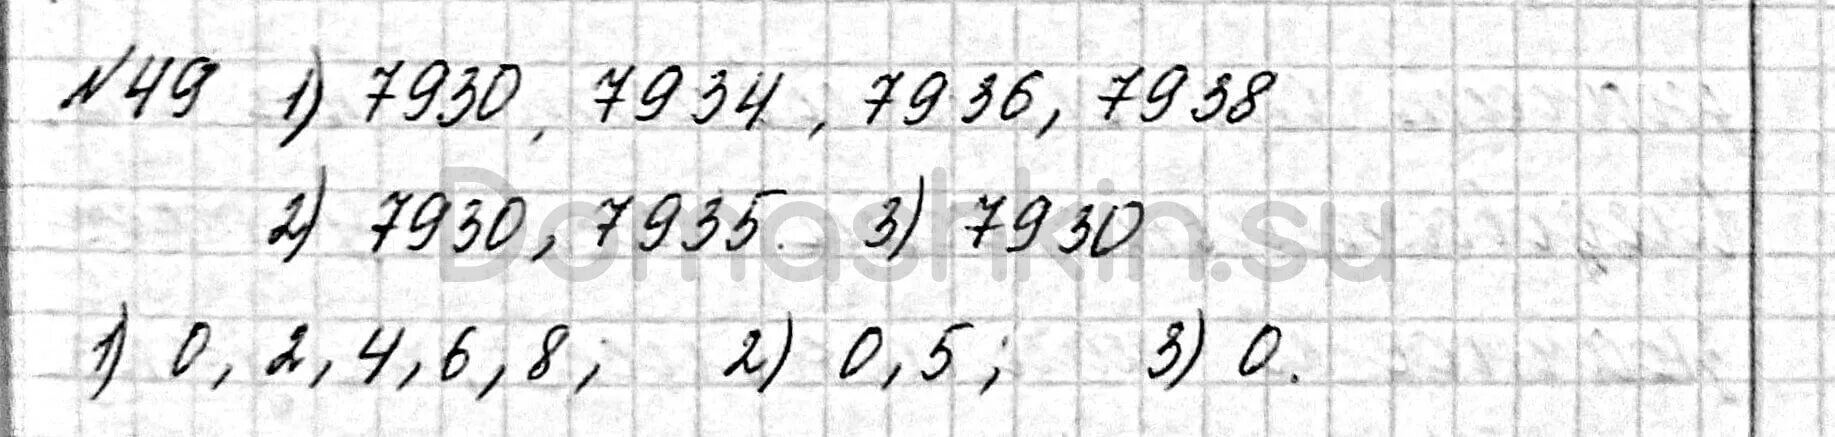 №49 1) 7930, 7934, 7936, 7938
2) 7930, 7935. 3) 7930
Domashkin.su
1) 0, 2, 4, 6, 8; 2) 0, 5; 3) 0.